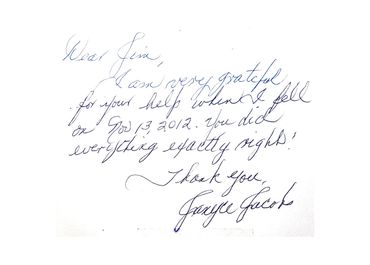 Dear Jim,
I am very grateful
for your help when I fell
on Nov 13, 2012. You did
everything exactly right!
Thank you,
Janyce Jacobs